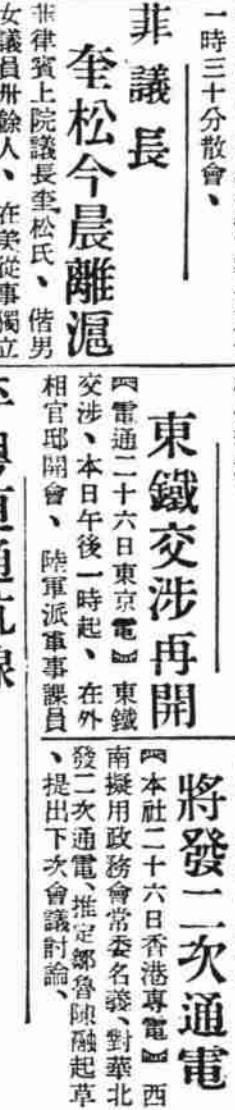 一時三十分散會、
菲議長
奎松今晨離滬
菲律賓上院議長奎松氏、偕男
女議員卅餘人、在美從事獨立
東鐵交涉再開
【電通二十六日東京電】東鐵
交涉、本日午後一時起、在外
相官邸開會、陸軍派軍事課員
將發二次通電
【本社二十六日香港專電】西
南擬用政務會常委名義、對華北
發二次通電、推定鄒魯陳融起草
、提出下次會議討論、